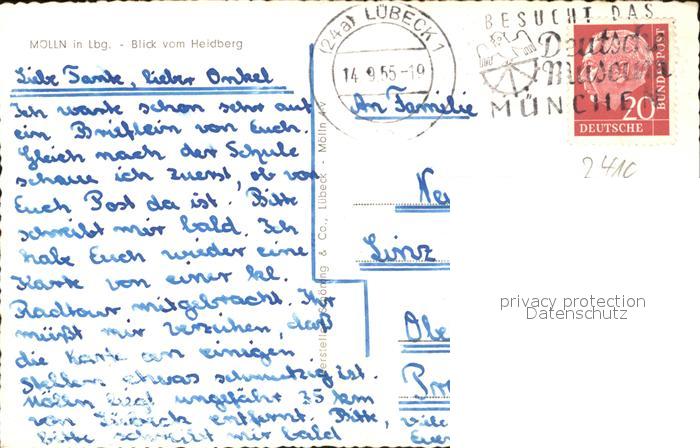 MÖLLN in Lbg. - Blick vom Heidberg
(24a) LÜBECK 1
14.9.55-19
BESUCHT DAS
Deutsche
Museum
MÜNCHEN
20
DEUTSCHE
BUNDESPOST
2410
Liebe Tante, lieber Onkel
Ich warte schon sehr auf
ein Brieflein von Euch.
Gleich nach der Schule
schaue ich zuerst, ob von
Euch Post da ist. Bitte
schreibt mir bald. Ich
habe Euch wieder eine
Karte von einer kl.
Radtour mitgebracht. Ihr
müßt mir verzeihen, daß
die Karte an einigen
Stellen etwas schmutzig ist.
Mölln liegt ungefähr 35 km
von Lübeck entfernt. Bitte,
bitte schreibt mir bald
viele
Euer
An Familie
Linz
& Co., Lübeck - Mölln
privacy protection
Datenschutz